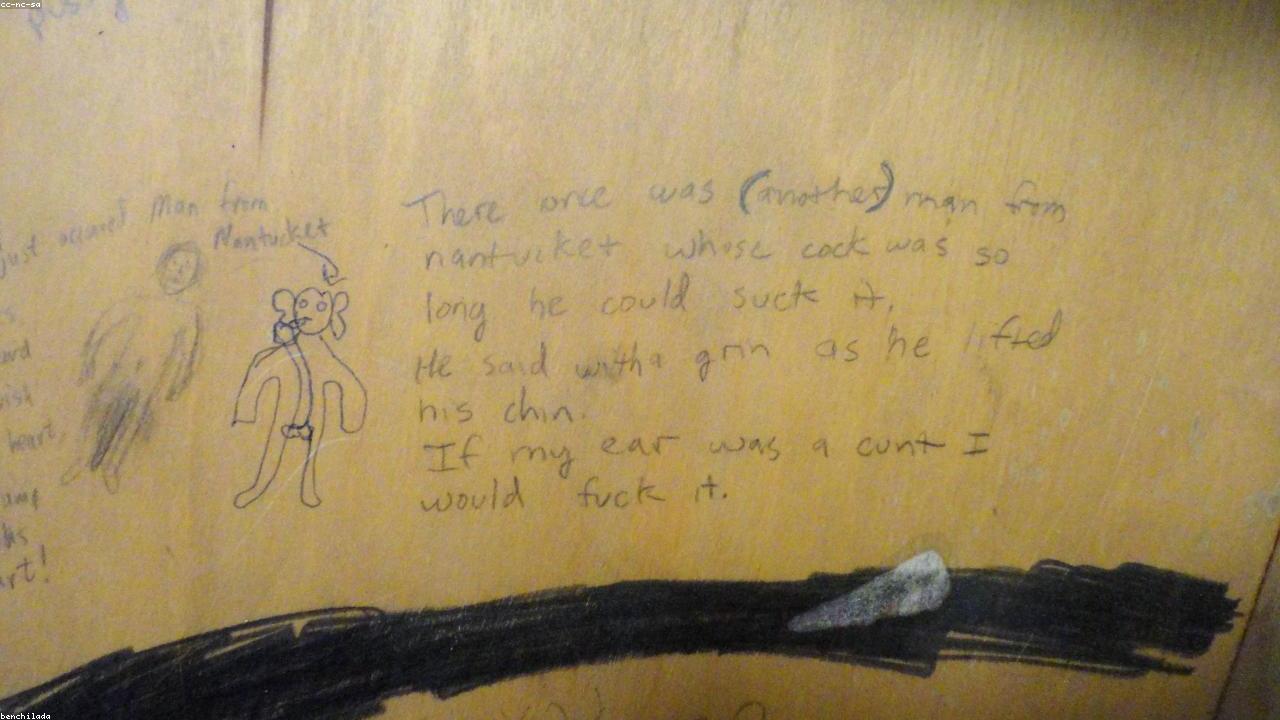 cc-nc-sa
just occured
Man from
Nantucket
heart,
There once was (another) man from
nantucket whose cock was so
long he could suck it.
He said with a grin as he lifted
his chin.
If my ear was a cunt I
would fuck it.
benchilada